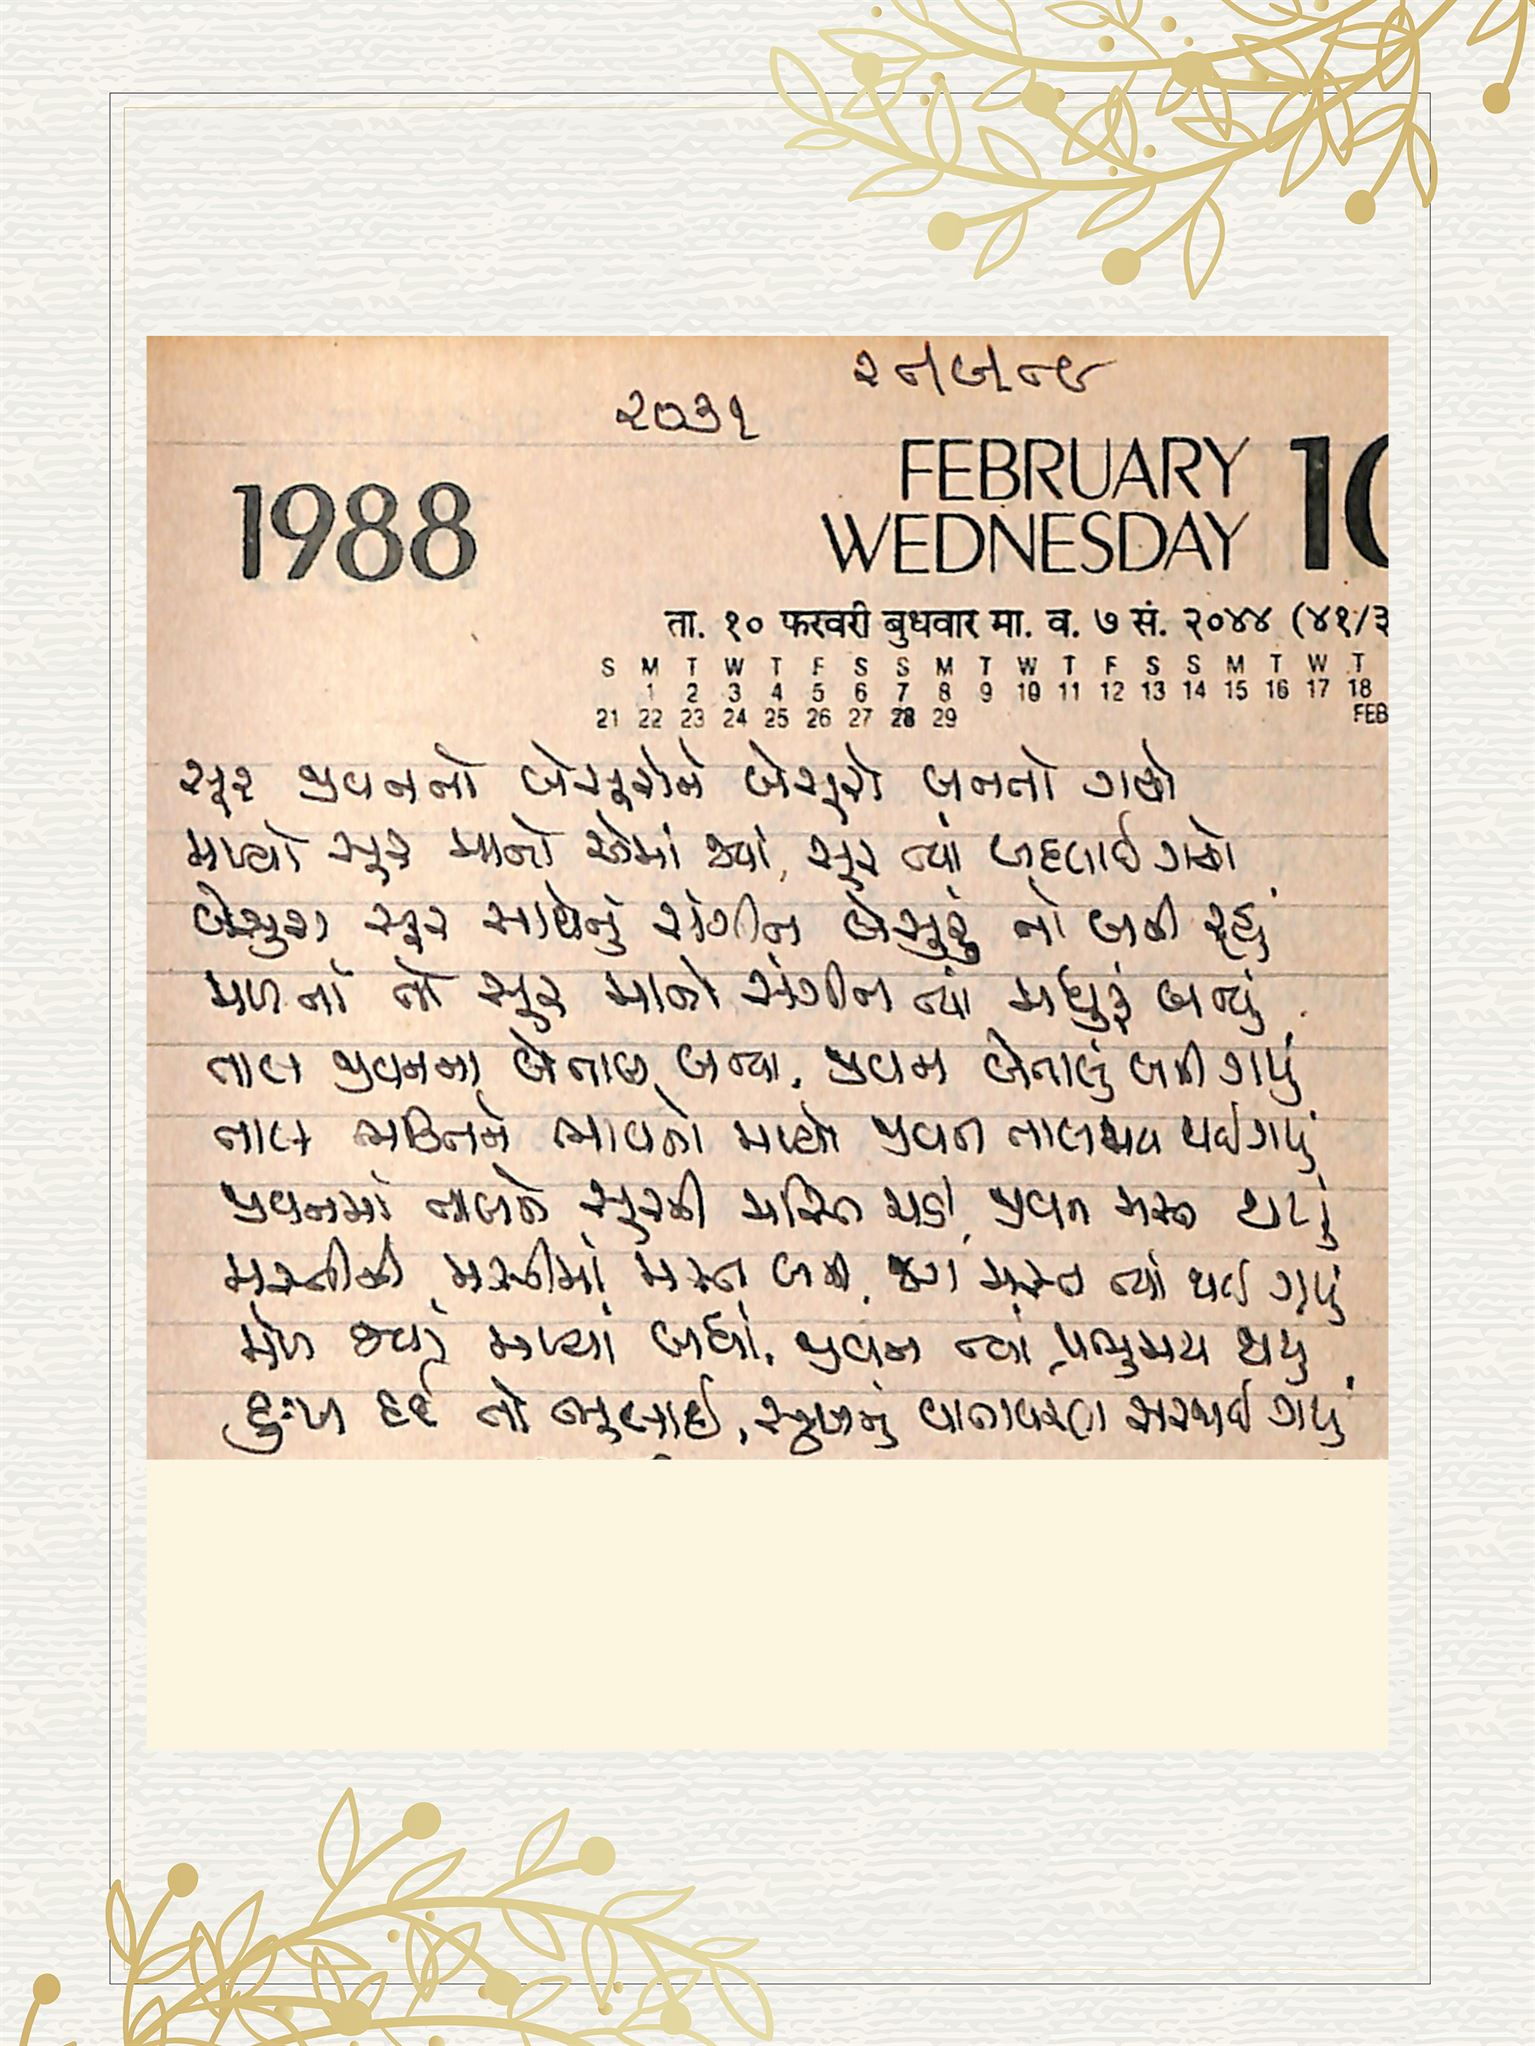 ૨૦૩૧
1988
FEBRUARY 10
WEDNESDAY
ता. १० फरवरी बुधवार मा. व. ७ सं. २०४४ (४१/३
S M T W T F S S M T W T F S S M T W T
1 2 3 4 5 6 7 8 9 10 11 12 13 14 15 16 17 18
21 22 23 24 25 26 27 28 29 FEB
સૂર જીવનનો બેસૂરોને બેસૂરો બનતો ગયો
મળ્યો સૂર માનો એમાં જ્યાં, સૂર ત્યાં બદલાઈ ગયો
બેસુરા સૂર સાથેનું સંગીત બેસુરું તો બની રહ્યું
મળતાં તો સૂર માનો સંગીત ત્યાં મધુરું બન્યું
તાલ જીવનના બેતાલ બન્યા, જીવન બેતાલું બની ગયું
તાલ ભક્તિને ભાવનો મળ્યો જીવન તાલમય થઈ ગયું
જીવનમાં તાલને સૂરની મસ્તિ ચડી, જીવન મસ્ત થયું
મસ્તીની મસ્તીમાં મસ્ત બની, જગ મસ્ત ત્યાં થઈ ગયું
મેળ જ્યાં મળ્યાં બધાં, જીવન ત્યાં પ્રભુમય થયું
દુઃખ દર્દ તો ભૂલાઈ, સુખનું વાતાવરણ સરજાઈ ગયું